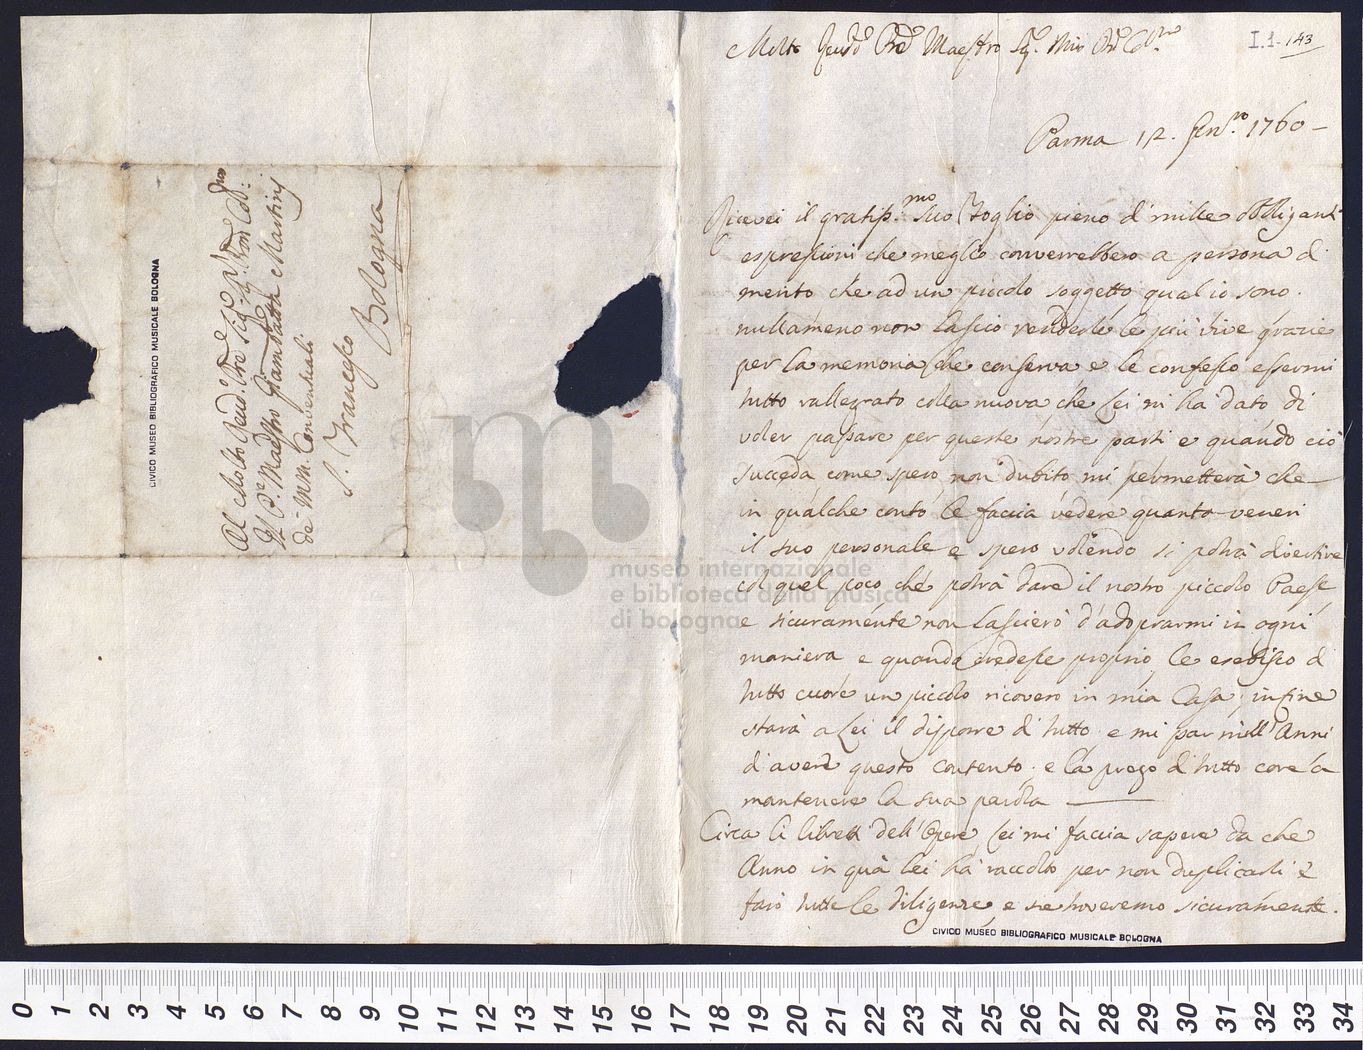 Al Molto Revd.º Pre Sig.r Sig.r Pron Col:mo
Il P.re Maestro Giambatta Martini
de' MM. Conventuali
S. Francesco
Bologna
CIVICO MUSEO BIBLIOGRAFICO MUSICALE BOLOGNA
I.1-143
Molto Revdo Pre Maestro Sig.e Mio Prone Col.mo
Parma 12. Gen.ro 1760-
Ricevei il gratiss.mo suo Foglio pieno d' mille obbliganti
espressioni che meglio converrebbero a persona di
merito che ad un piccolo soggetto qual io sono.
nullameno non lascio renderle le più vive grazie
per la memoria che conserva e le confesso essermi
tutto rallegrato colla nuova che Lei mi ha dato di
voler passare per queste nostre parti e quando ciò
succeda come spero non dubito mi permetterà che
in qualche conto le faccia vedere quanto veneri
il suo personale e spero volendo si potrà divertire
col quel poco che potrà dare il nostro piccolo Paese
e sicuramente non lascierò d'adoprarmi in ogni
maniera e quando credesse proprio le esebisco di
tutto cuore un piccolo ricovero in mia Casa, infine
starà a Lei il disporre di tutto e mi par mill'Anni
d'avere questo contento, e la prego di tutto core a
mantenere la sua parola
Circa li libretti dell'Opere Lei mi faccia sapere da che
Anno in quà Lei hà raccolto per non duplicarli e
farò tutte le diligenze e ne troveremo sicuramente.
CIVICO MUSEO BIBLIOGRAFICO MUSICALE BOLOGNA
museo internazionale
e biblioteca della musica
di bologna
0 1 2 3 4 5 6 7 8 9 10 11 12 13 14 15 16 17 18 19 20 21 22 23 24 25 26 27 28 29 30 31 32 33 34